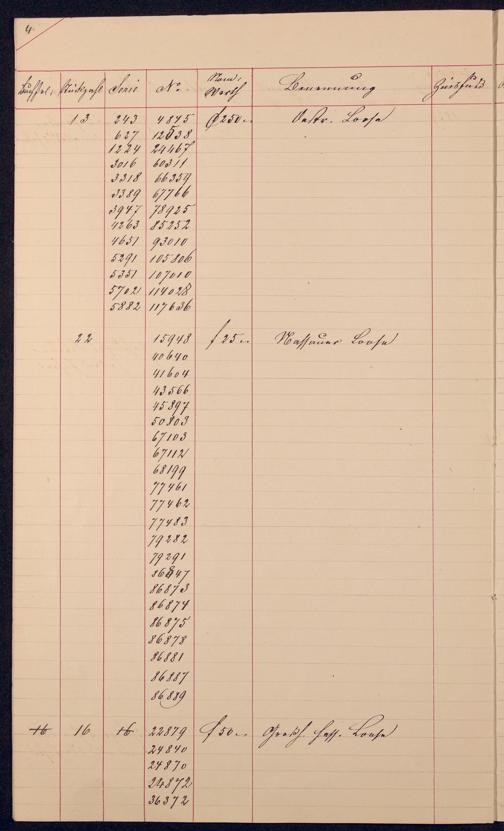 4.
Stückzahl Serie No. Nom: Werth Benennung Zinsfuß
13 243 4845 f 250.. Oestr. Loose
627 12538
1224 24467
3016 60311
3318 66359
3389 67766
3947 78925
4263 85252
4651 93010
5291 105806
5351 107010
5702 114028
5882 117636
22 15948 f 25.. Nassauer Loose
40640
41604
43566
45897
50803
67103
67112
68199
77461
77462
77483
79282
79291
86847
86873
86874
86875
86878
86881
86887
86889
16 16 16 22879 f 50.. Großh. Hess. Loose
24840
24870
24872
36372